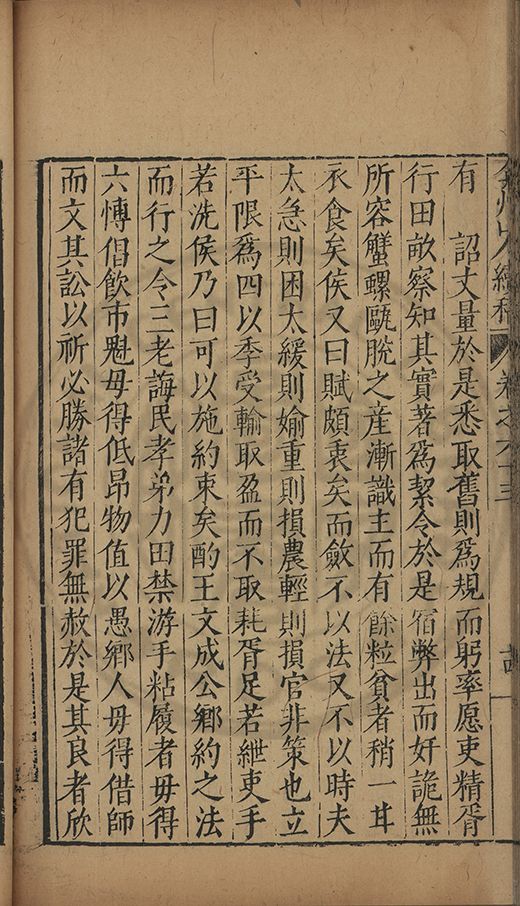 續稿 卷之六十三
有 詔丈量於是悉取舊則爲規而躬率愿吏精胥
行田畝察知其實著爲絜令於是宿弊出而奸詭無
所容蟹螺甌脫之産漸識主而有餘粒貧者稍一甘
衣食矣侯又曰賦頗衷矣而斂不以法又不以時夫
太急則困太緩則媮重則損農輕則損官非策也立
平限爲四以季受輸取盈而不取耗胥足若紲吏手
若洗侯乃曰可以施約束矣酌王文成公鄉約之法
而行之令三老誨民孝弟力田禁游手粘履者毋得
六慱倡飲市魁毋得低昂物值以愚鄉人毋得借師
而文其訟以祈必勝諸有犯罪無赦於是其良者欣